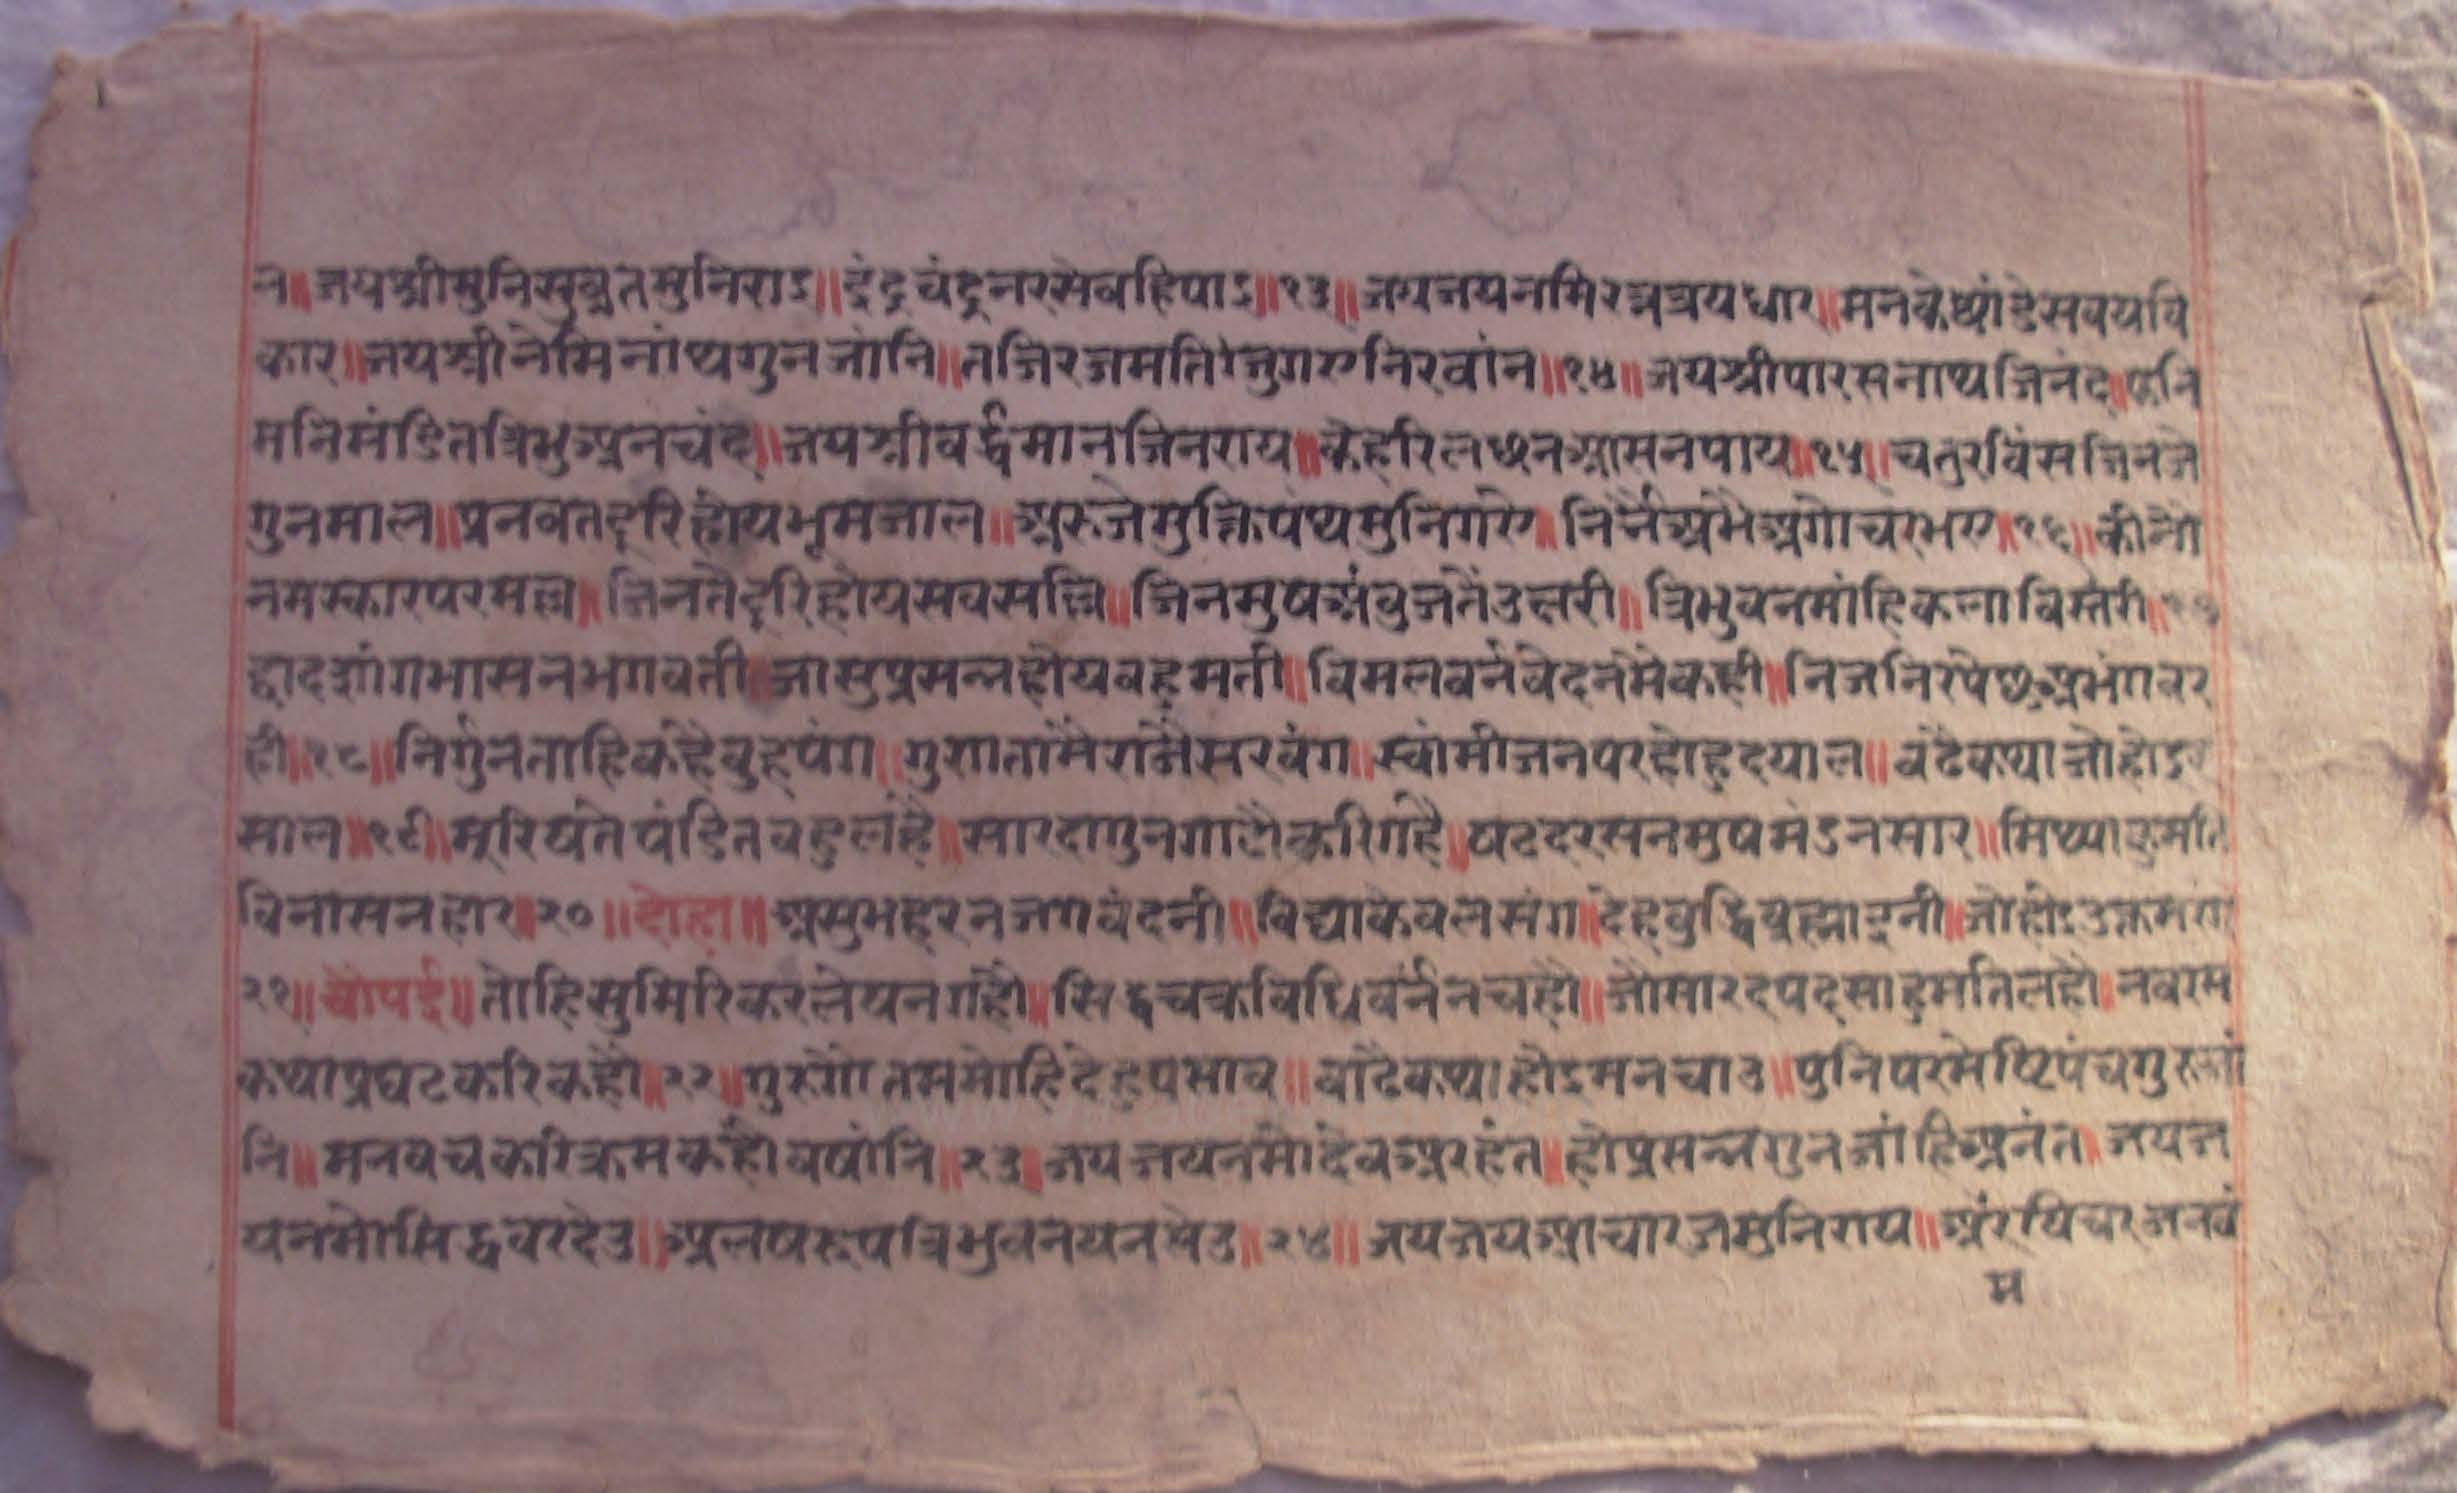 न॥जयश्रीमुनिसुव्रतमुनिराऽ॥इंद्रचंद्रनरसेवहिपाऽ॥१३॥जयजयनमिरत्नत्रयधार॥मनकेछांडेसवयवि
कार॥जयश्रीनेमिनांथगुनजांनि॥तजिरजमतिजुगएनिरवांन॥१४॥जयश्रीपारसनाथजिनंद॥फनि
मनिमंडितत्रिभुअनचंद॥जयश्रीवर्द्धमानजिनराय॥केहरिलछनआसनपाय॥१५॥चतुरविंसजिनजे
गुनमाल॥प्रनवतदूरिहोयभ्रमजाल॥अरुजेमुक्तिपंथमुनिगए॥निर्नैअभैअगोचरभए॥१६॥कीनौं
नमस्कारपरमल्ल॥जिनतैदूरिहोयसवसल्लि॥जिनमुषअंवुजतेंउत्तरी॥त्रिभुवनमांहिकलाविस्तरी॥१७
द्वादशांगभासनभगवती॥जासुप्रसन्नहोयवहुमती॥विमलवर्नवेदनमेकही॥निजनिरपेछअभंगवर
ही॥१८॥निर्गुनताहिकहैवुहपंग॥गुणतामैराजैसरवंग॥स्वांमीजनपरहोहुदयाल॥वंढैकथाजोहोऽर
साल॥१९॥मूरिषतेपंडितवहुलहै॥सारदागुनगाढौकरिगहै॥षटदरसनमुषमंडनसार॥मिथ्याकुमति
विनासनहार॥२०॥दोहा॥असुभहरनजगवंदनी॥विद्याकेवलसंग॥देहवुद्धिव्रह्माइनी॥जोहोऽउक्तमंग॥
२१॥चौपई॥तोहिसुमिरिकरलेषनगहौं॥सिद्धचक्रविधिवर्ननचहौं॥जौसारदपदसाहुमतिलहौ॥नवरस
कथाप्रघटकरिकहौं॥२२॥गुरुगौतममोहिदेहुपसाव॥वाढैकथाहोऽमनचाउ॥पुनिपरमेष्टिपंचगुरुजां
नि॥मनवचकरिक्रमकहौवषांनि॥२३॥जयजयनमोदेवअरहंत॥होप्रसन्नगुनजांहिअनंत॥जयज
यनमोसिद्धवरदेउ॥अलषरूपत्रिभुवनयनषेउ॥२४॥जयजयआचारजमुनिराय॥
म